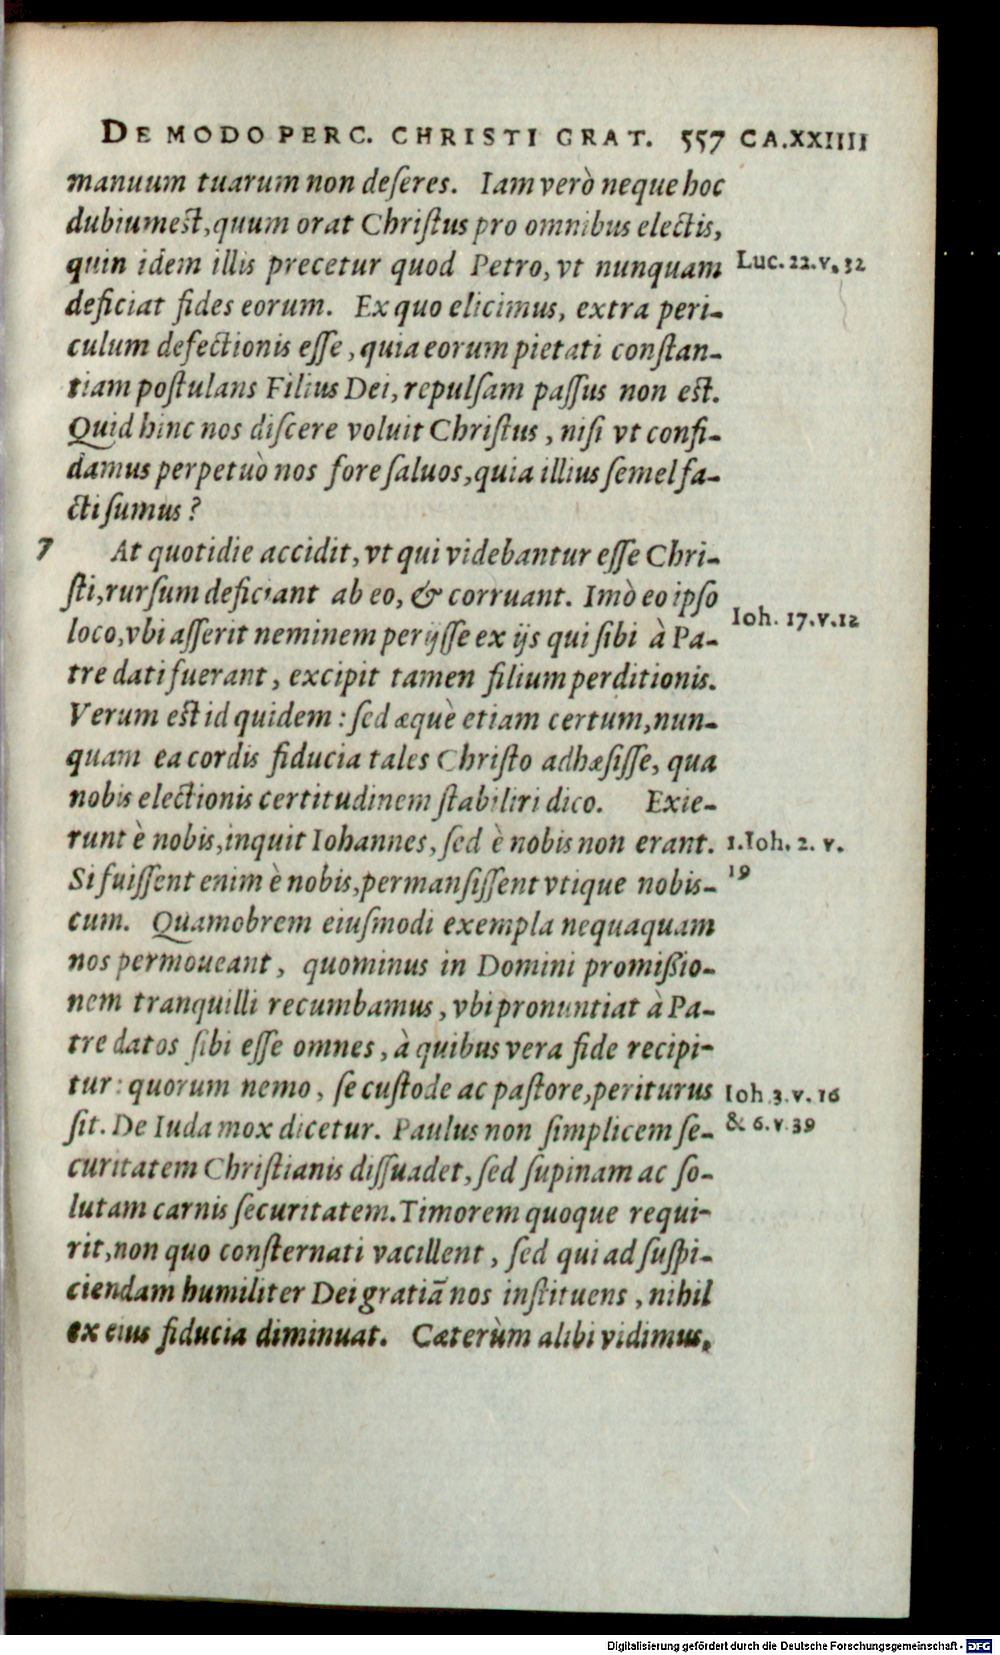 DE MODO PERC. CHRISTI GRAT. 557 CA.XXIIII
manuum tuarum non deſeres. Iam verò neque hoc
dubium est, quum orat Chriſtus pro omnibus electis,
quin idem illis precetur quod Petro, vt nunquam
Luc. 22.v.32
deficiat fides eorum. Ex quo elicimus, extra peri-
culum defectionis eſſe, quia eorum pietati conſtan-
tiam poſtulans Filius Dei, repulſam paſſus non est.
Quid hinc nos diſcere voluit Chriſtus, niſi vt confi-
damus perpetuò nos fore ſaluos, quia illius ſemel fa-
cti ſumus?
7 At quotidie accidit, vt qui videbantur eſſe Chri-
ſti, rurſum deficiant ab eo, & corruant. Imò eo ipſo
loco, vbi aſſerit neminem perijſſe ex ijs qui ſibi à Pa-
Ioh. 17.v.12
tre dati fuerant, excipit tamen filium perditionis.
Verum est id quidem: ſed æquè etiam certum, nun-
quam ea cordis fiducia tales Chriſto adhæſiſſe, qua
nobis electionis certitudinem ſtabiliri dico. Exie-
runt è nobis, inquit Iohannes, ſed è nobis non erant.
1.Ioh. 2. v.
19
Si fuiſſent enim è nobis, permanſiſſent vtique nobis-
cum. Quamobrem eiuſmodi exempla nequaquam
nos permoueant, quominus in Domini promißio-
nem tranquilli recumbamus, vbi pronuntiat à Pa-
tre datos ſibi eſſe omnes, à quibus vera fide recipi-
tur: quorum nemo, ſe cuſtode ac paſtore, periturus
Ioh.3.v.16
& 6.v.39
ſit. De Iuda mox dicetur. Paulus non ſimplicem ſe-
curitatem Chriſtianis diſſuadet, ſed ſupinam ac ſo-
lutam carnis ſecuritatem. Timorem quoque requi-
rit, non quo conſternati vacillent, ſed qui ad ſuſpi-
ciendam humiliter Dei gratiã nos inſtituens, nihil
ex eius fiducia diminuat. Cæterùm alibi vidimus,
Digitalisierung gefördert durch die Deutsche Forschungsgemeinschaft - DFG